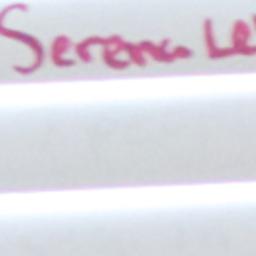 Serena Le